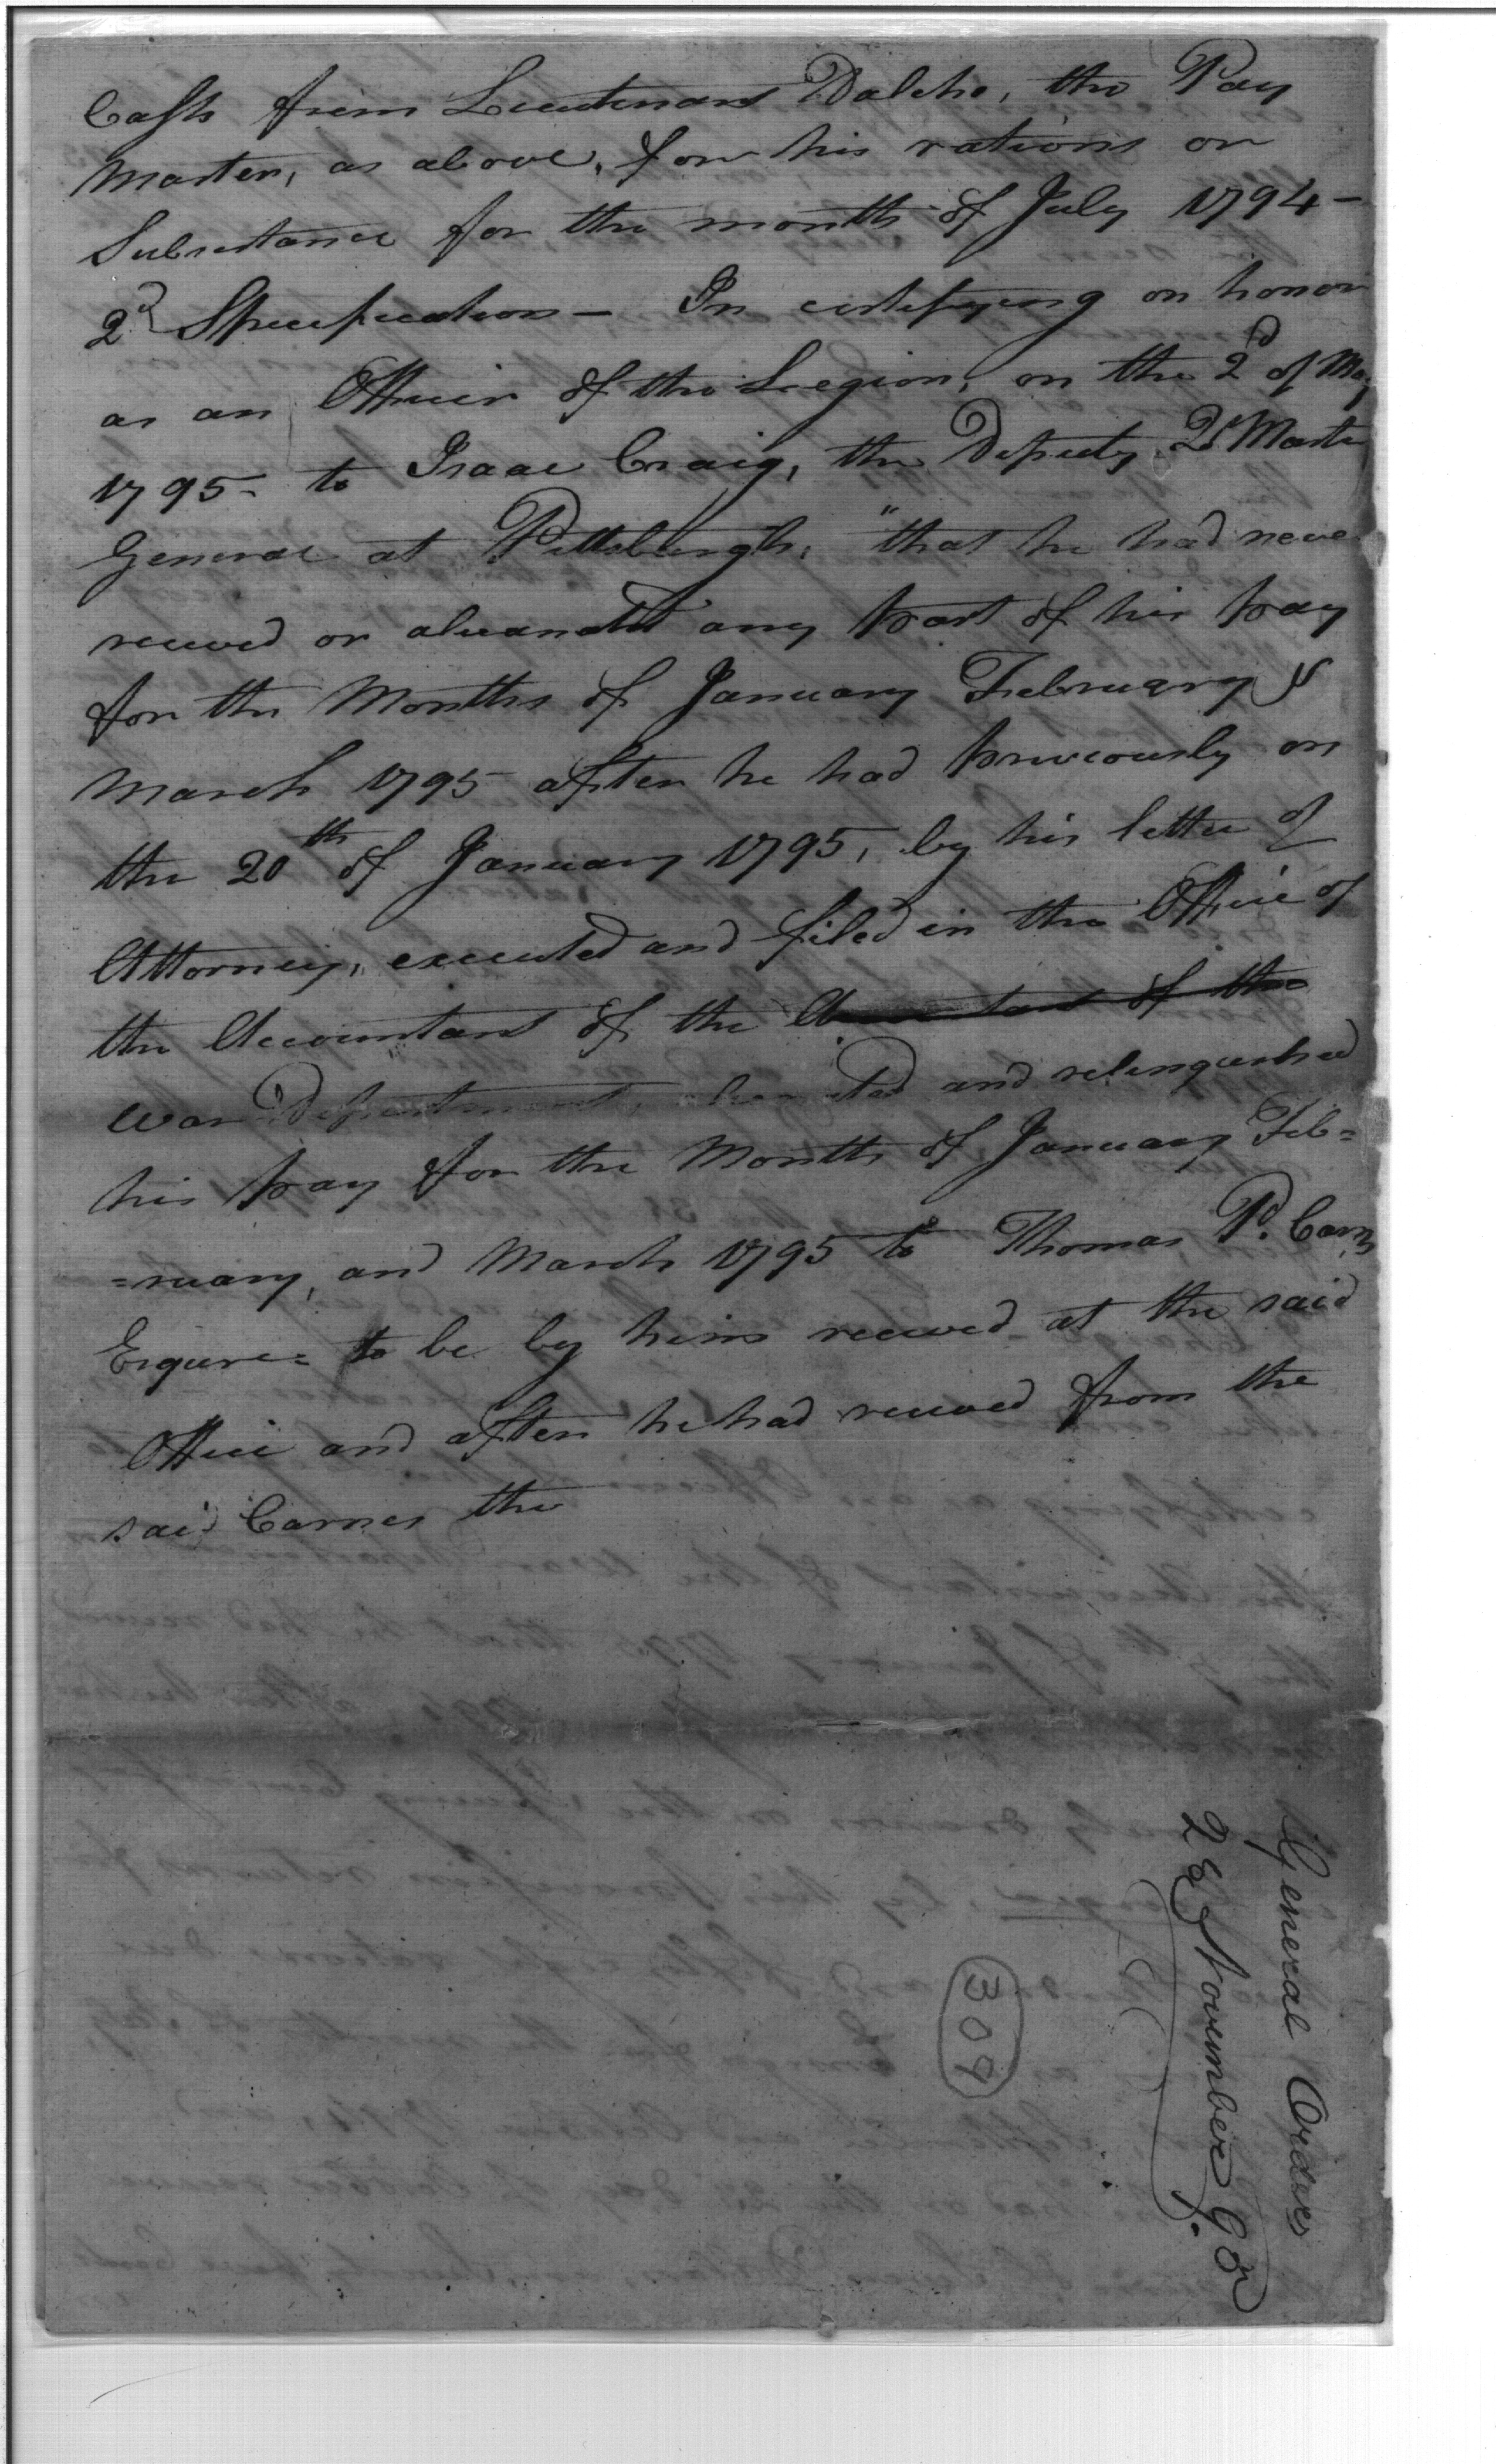 Cash from Lieutenant Dalcho, the Pay
Master, as above, for his rations or
Subsistance for the month of July 1794 -
2d Specification - In certifying on honor
as an Officer of the Legion, on the 2d of May
1795 - to Isaac Craig, the Deputy Qr Master
General at Pittsburgh, "that he had never
received or alienated any part of his pay
for the Months of January February &
March 1795 after he had previously on
the 20th of January 1795, by his letter of
Attorney, executed and filed in the Office of
the Accountant of the Accountant of the
War Department, alienated and relinquished
his pay for the Months of January Feb=
=ruary, and March 1795 to Thomas P. Carns
Esquire = to be by him received at the said
Office and after he had received from the
said Carnes the
General Orders
28 November 95
309